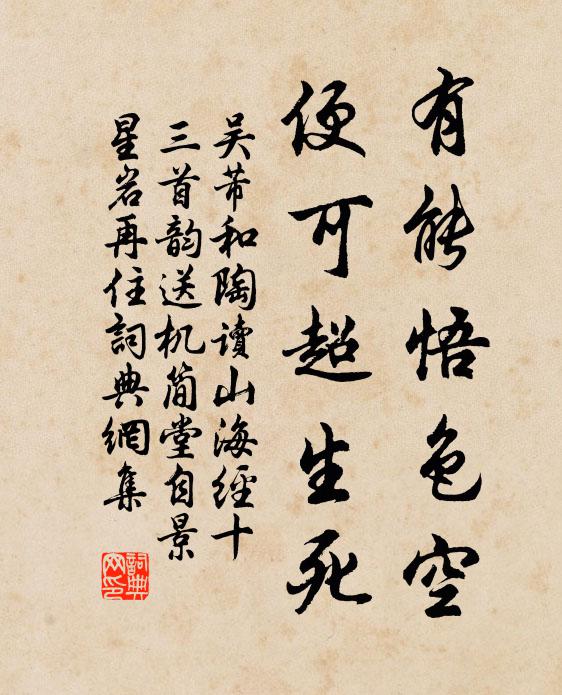 有能悟色空
便可超生死
吴芾和陶讀山海經十
三首韵送机简堂自景
星岩再住詞典網集
詞典网印